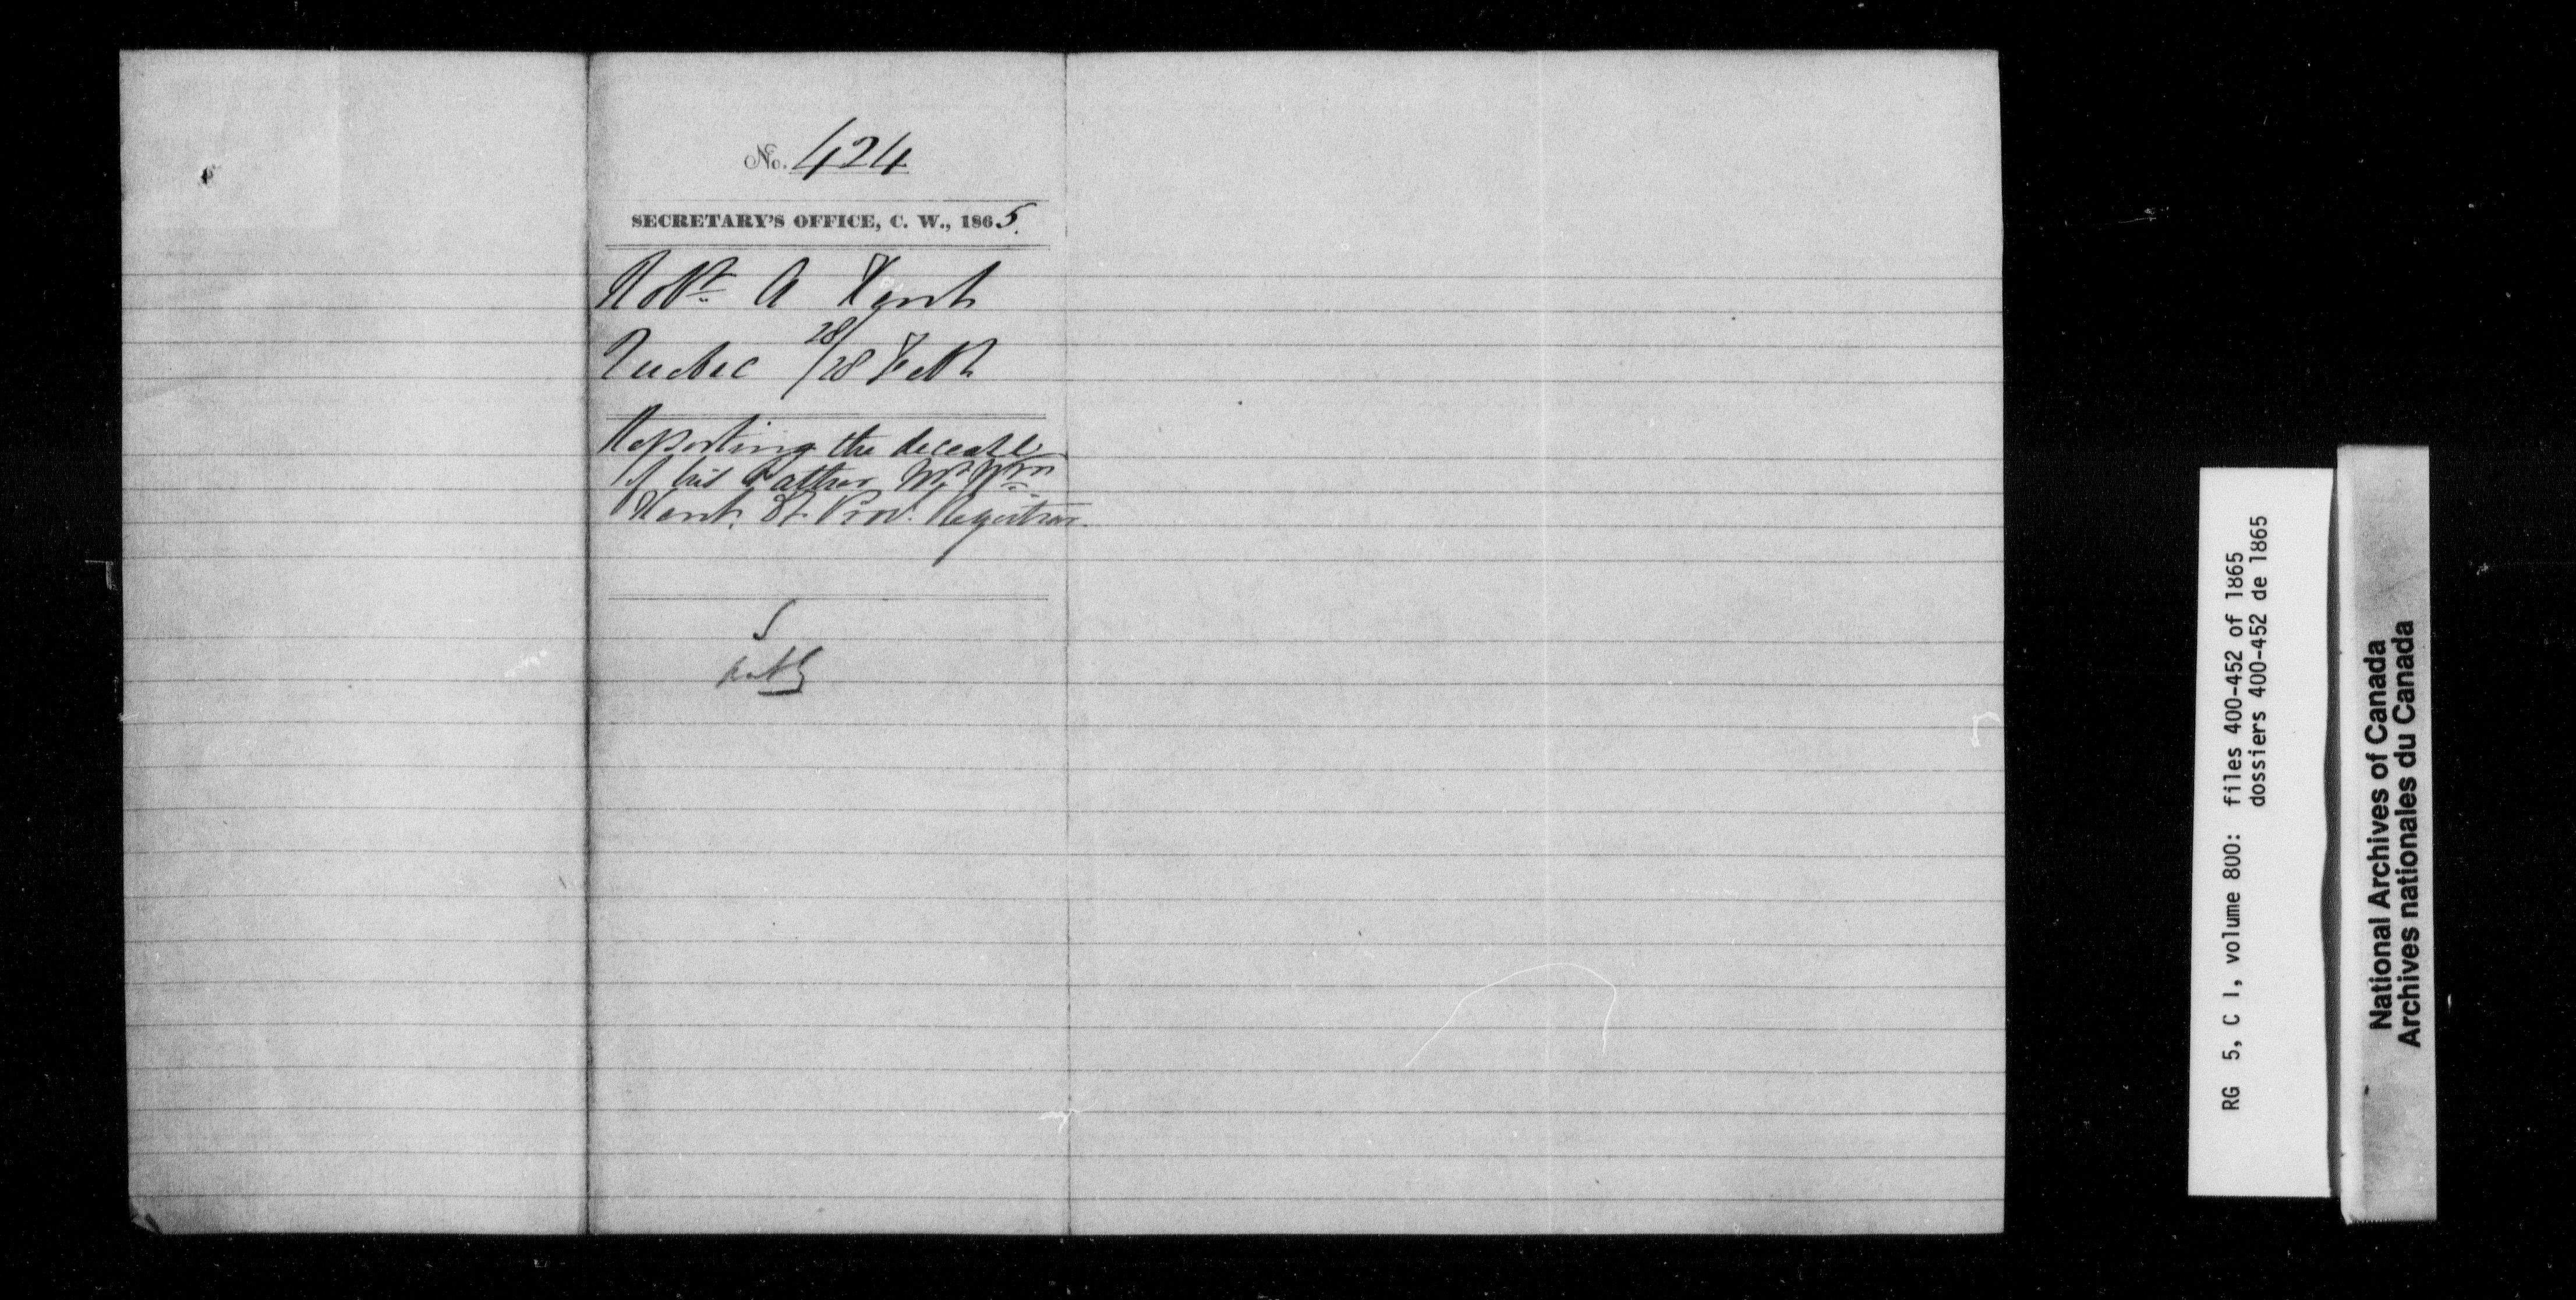 No. 424
SECRETARY'S OFFICE, C. W., 1865.
Robt. A Kent
Quebec 28/28 Feb
Reporting the decease
of his Father Mr Wm
Kent, Dt. Prov. Registrar.
RG 5, C 1, volume 800: files 400-452 of 1865
dossiers 400-452 de 1865
National Archives of Canada
Archives nationales du Canada